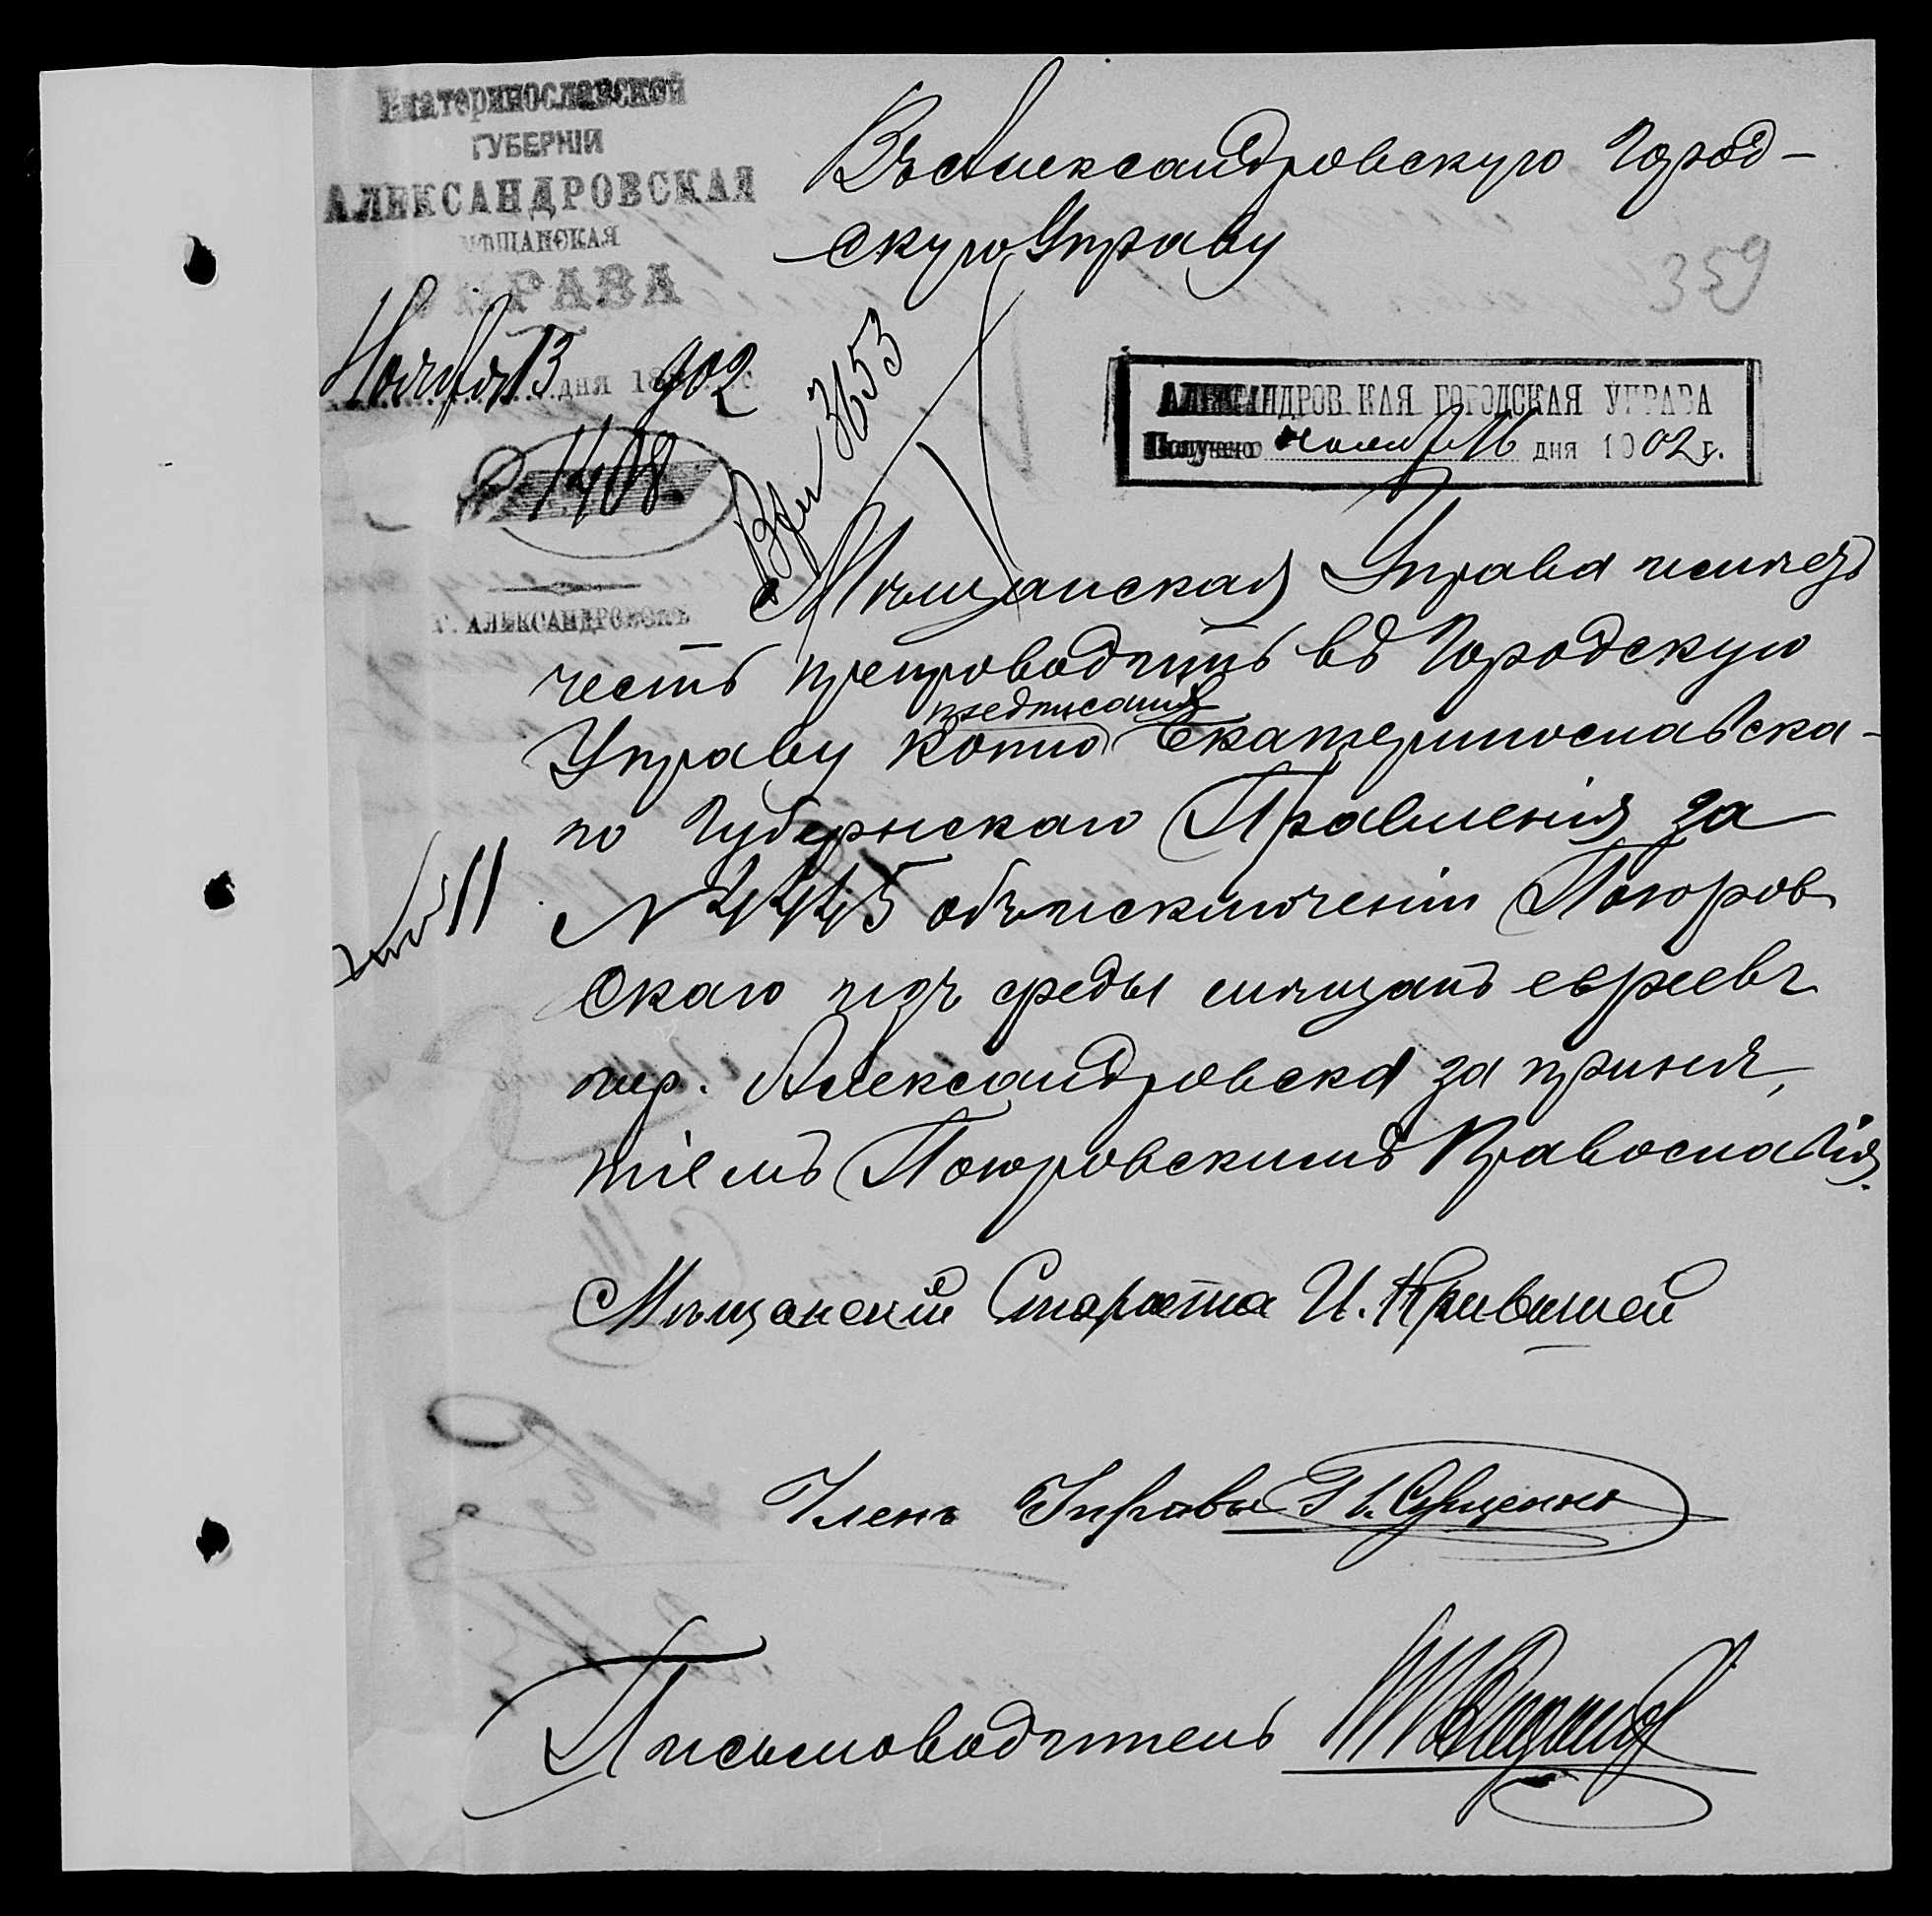 Екатеринославской
ГУБЕРНІИ
АЛЕКСАНДРОВСКАЯ
МѢЩАНСКАЯ
УПРАВА
Ноября 13 дня 18 902
№ 1408
г. АЛЕКСАНДРОВСКЪ
Въ Александровскую Город-
скую Управу
359
Вхд 3653
АЛЕКСАНДРОВСКАЯ ГОРОДСКАЯ УПРАВА
Получено нояб 16 дня 1902 г.
Мѣщанская Управа имѣетъ
честь препроводить въ Городскую
предписанія
Управу копію Екатеринославска-
го Губернскаго Правленія за
№ 4445 объ исключеніи Покров
скаго изъ среды мѣщанъ евреевъ
гор. Александровска за приня,
тіемъ Покровскимъ Православія.
Мѣщанскій Староста И.
Членъ Управы
Письмоводитель